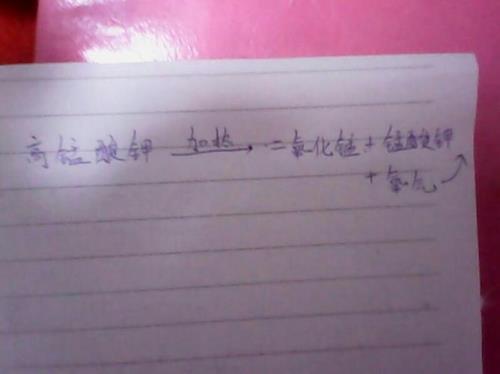 高锰酸钾 加热→ 二氧化锰+锰酸钾
+氧气